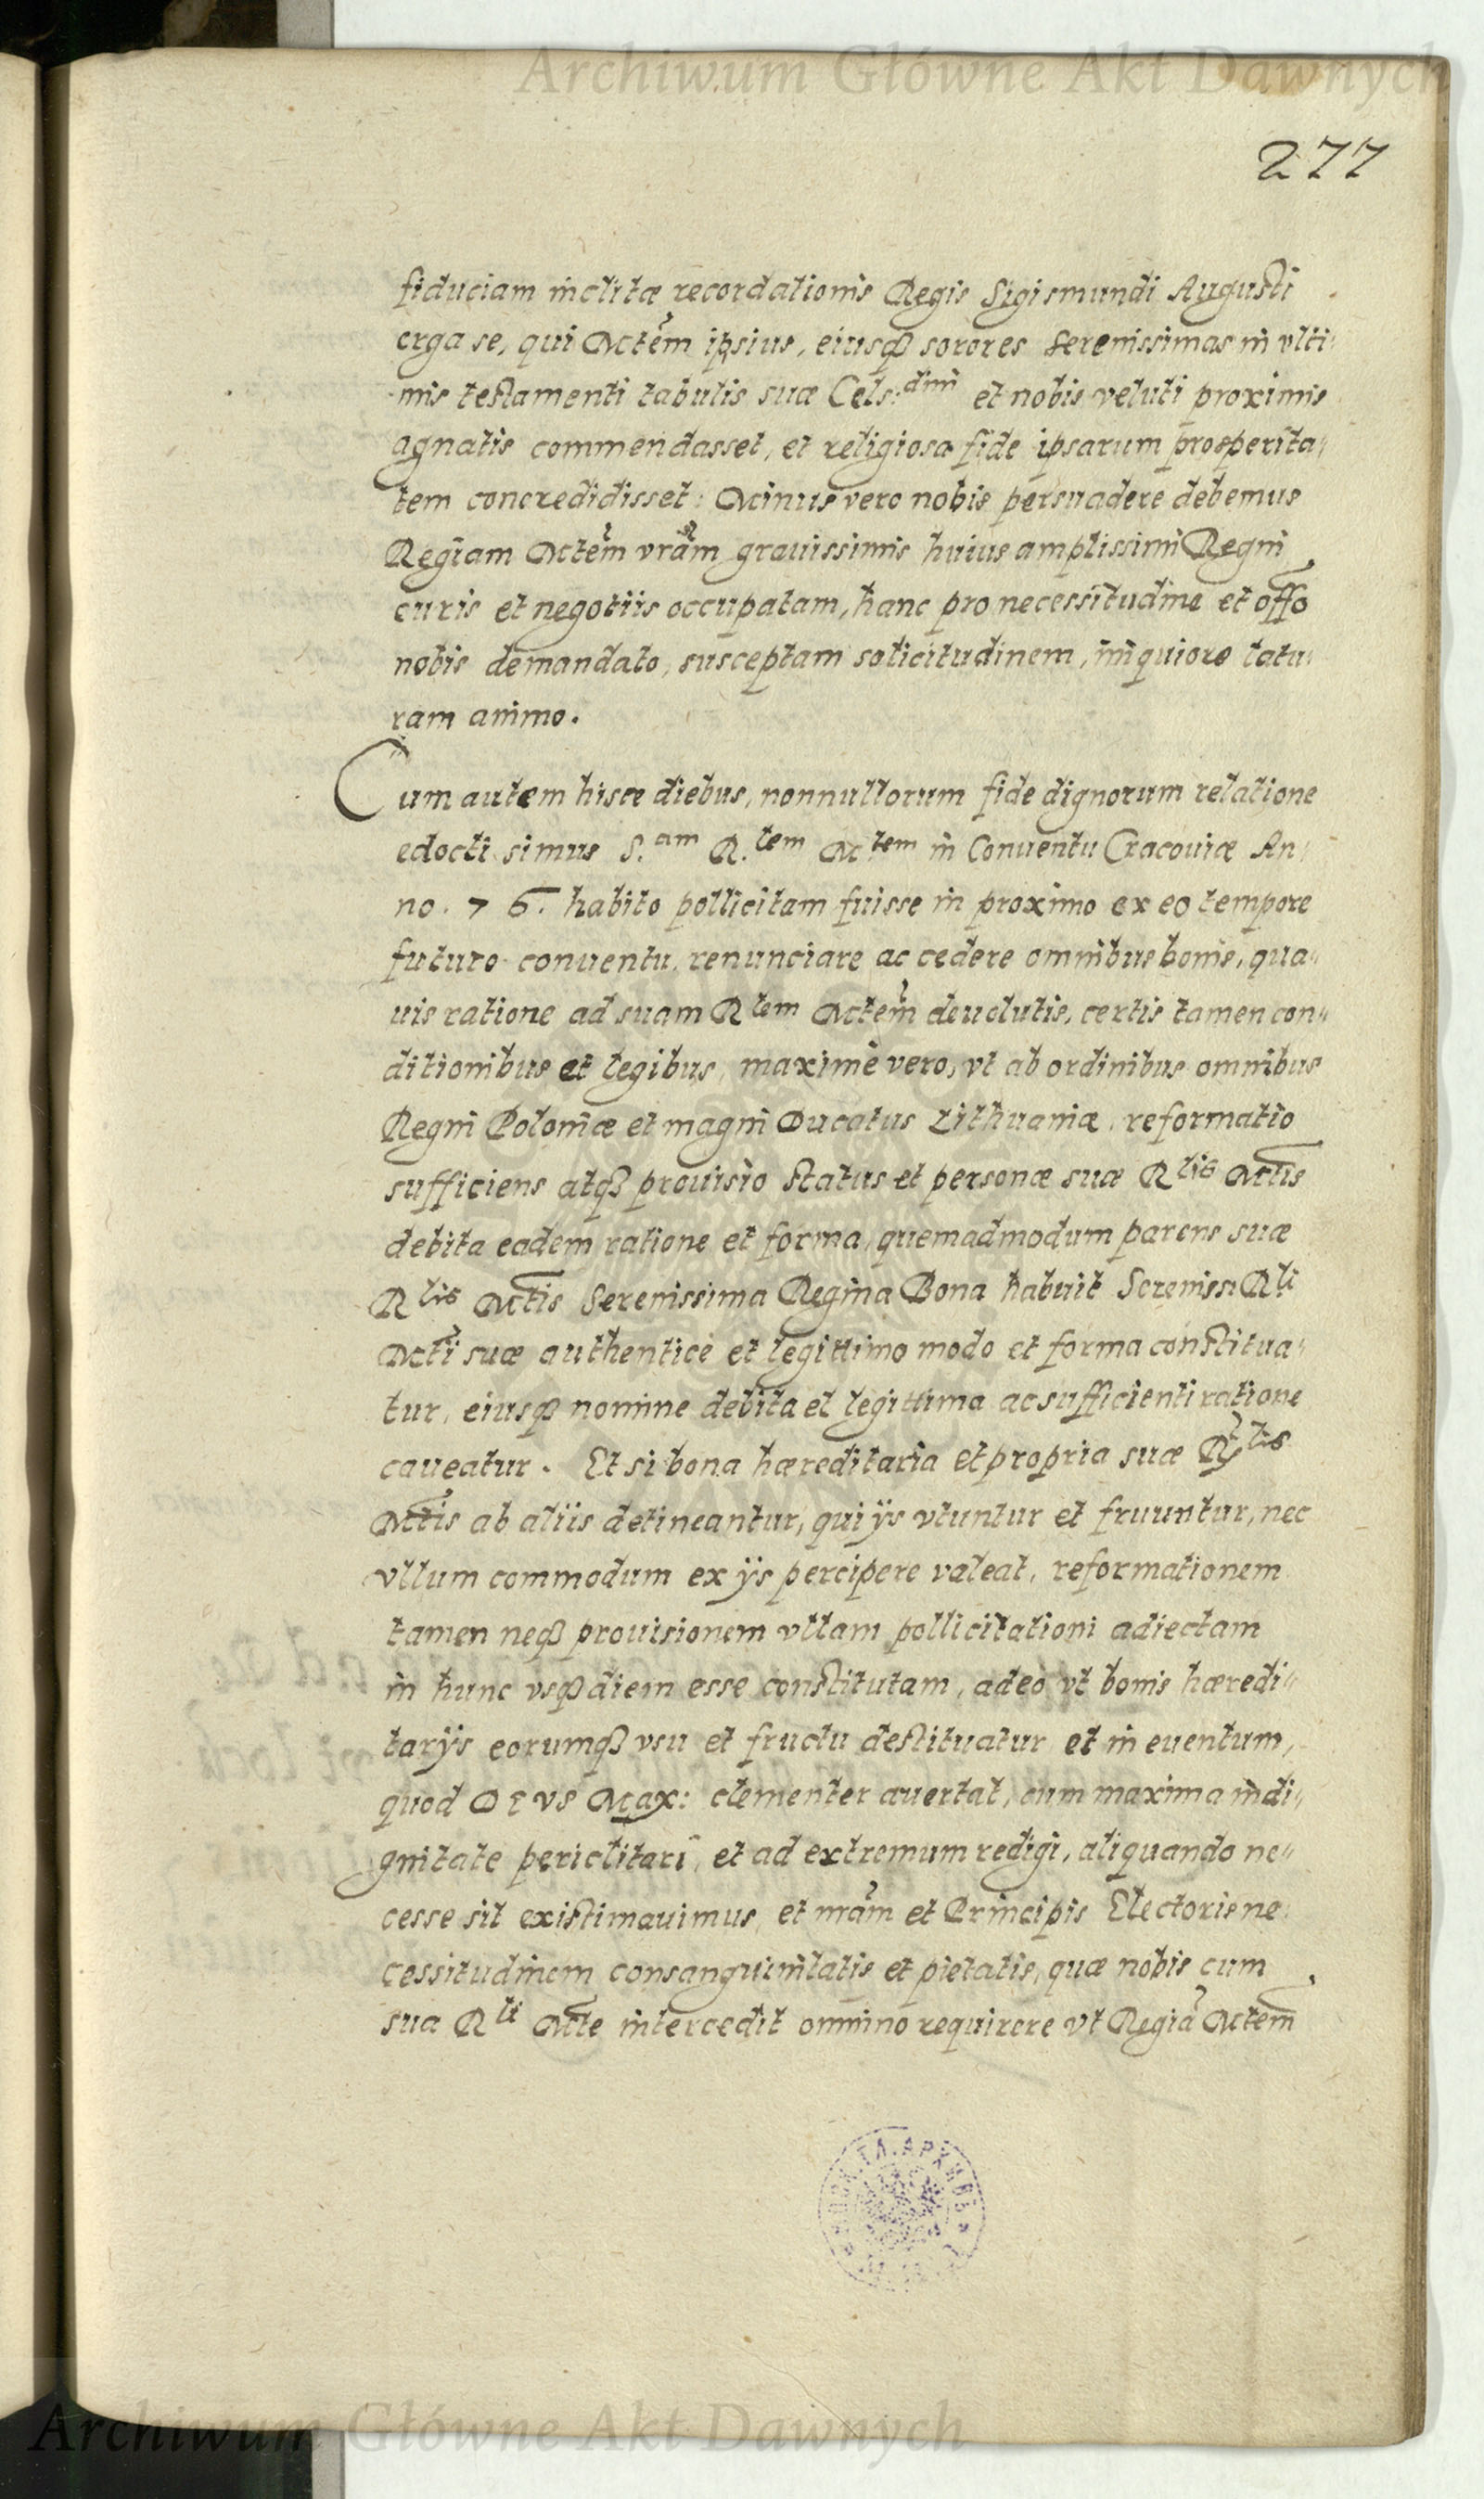 Archiwum Główne Akt Dawnych
277
fiduciam inclitæ recordationis Regis Sigismundi Augusti
erga se, qui Mctem ipsius, eiusq sorores Serenissimas in vlti:
mis testamenti tabulis suæ Cels:dini et nobis veluti proximis
agnatis commendasset, et religiosa fide ipsarum prosperita„
tem concredidisset: Minus vero nobis persuadere debemus
Regiam Mctem vram grauissimis huius amplissimi Regni
curis et negotiis occupatam, hanc pro necessitudine et offo
nobis demandato, susceptam solicitudinem, iniquiore latu:
ram animo.
Cum autem hisce diebus, nonnullorum fide dignorum relatione
edocti simus S.am R.tem Mctem in Conuentu Cracouiæ An„
no. 76. habito pollicitam fuisse in proximo ex eo tempore
futuro conuentu, renunciare ac cedere omnibus bonis, qua„
uis ratione ad suam Rtem Mctem deuolutis, certis tamen con„
ditionibus et legibus, maximè vero, vt ab ordinibus omnibus
Regni Poloniæ et magni Ducatus Lithuaniæ, reformatio
sufficiens atq prouisio status et personæ suæ Rtis Mctis
debita eadem ratione et forma, quemadmodum parens suæ
Rtis Mctis Serenissima Regina Bona habuit Sereniss: Rti
Mcti suæ authenticè et legittimo modo et forma constitua„
tur, eiusq nomine debita et legittima ac sufficienti ratione
caueatur. Et si bona hæreditaria et propria suæ Rtis
Mctis ab aliis detineantur, qui ijs vtuntur et fruuntur, nec
vllum commodum ex ijs percipere valeat, reformationem
tamen neq prouisionem vllam pollicitationi adiectam
in hunc vsq diem esse constitutam, adeò vt bonis hæredi„
tarijs eorumq vsu et fructu destituatur et in euentum,
quod Deus Max: clementer auertat, cum maxima indi„
gnitate periclitari, et ad extremum redigi, aliquando ne„
cesse sit existimauimus, et nram et Principis Electoris ne:
cessitudinem consanguinitatis et pietatis, quæ nobis cum
sua Rti Mcte intercedit omnino requirere vt Regiã Mctem
Archiwum Główne Akt Dawnych